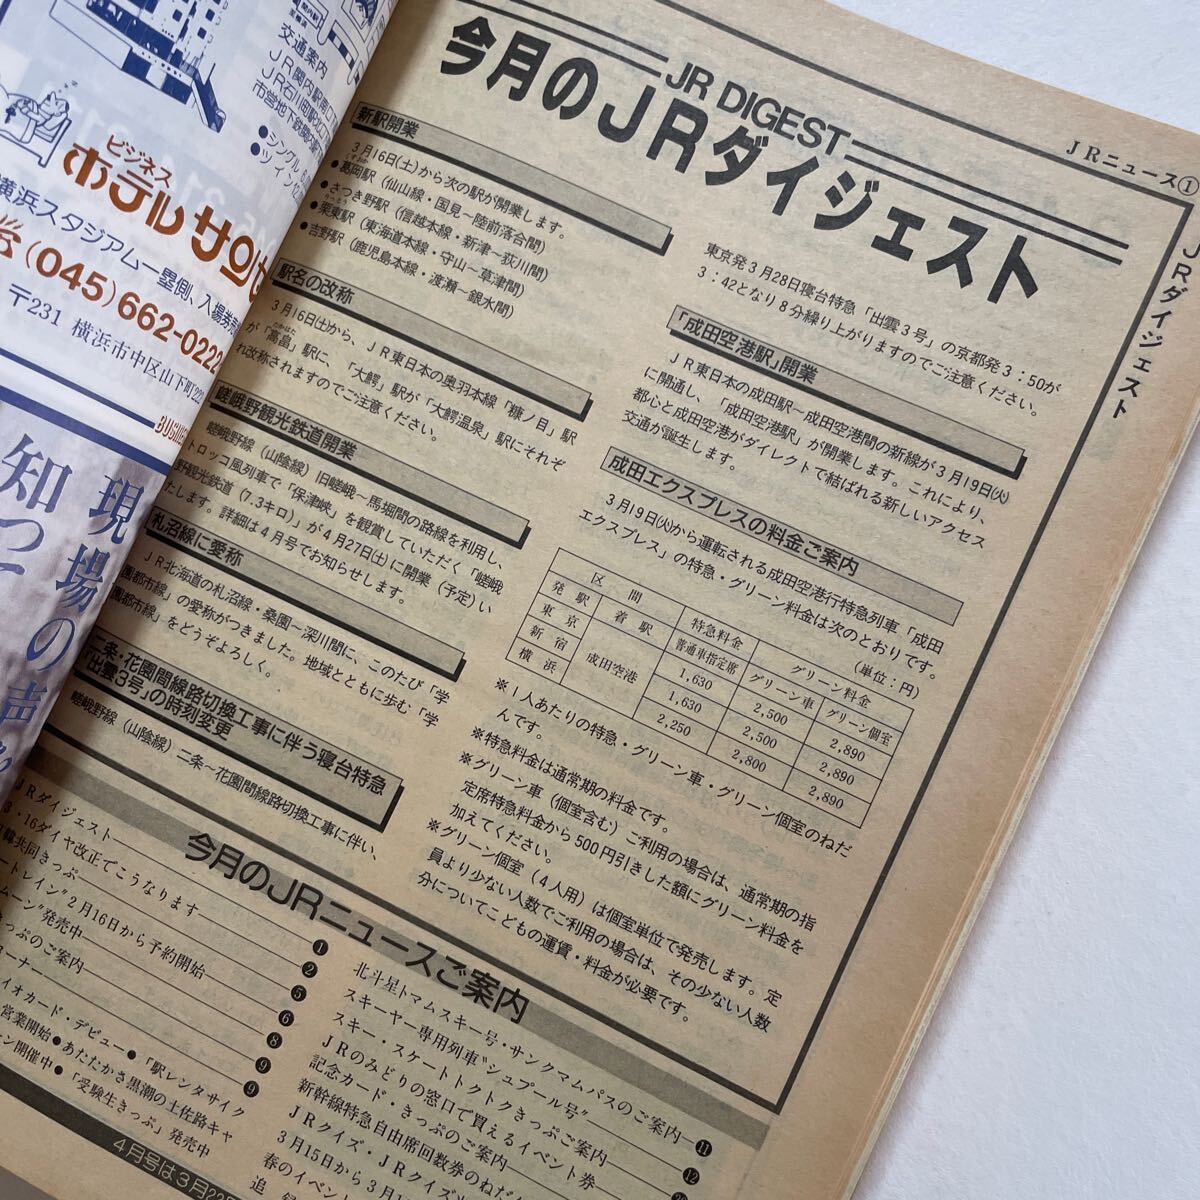 交通案内
JR関内駅南口
JR石川町駅
市営地下鉄関内
●シングル
●ツイン
ビジネス
ホテルサンセ
横浜スタジアム一塁側、入場券売
(045)662-0222
〒231 横浜市中区山下町222
現場の声
知っ
JRニュース①
JRダイジェスト
JR DIGEST
今月のJRダイジェスト
新駅開業
3月16日(土)から次の駅が開業します。
●葛岡駅(仙山線・国見〜陸前落合間)
●さつき野駅(信越本線・新津〜荻川間)
●栗東駅(東海道本線・守山〜草津間)
●吉野駅(鹿児島本線・渡瀬〜銀水間)
駅名の改称
3月16日(土)から、JR東日本の奥羽本線「糠ノ目」駅
が「高畠」駅に、「大鰐」駅が「大鰐温泉」駅にそれぞ
れ改称されますのでご注意ください。
嵯峨野観光鉄道開業
嵯峨野線(山陰線)旧嵯峨〜馬堀間の路線を利用し、
トロッコ風列車で「保津峡」を観賞していただく「嵯峨
野観光鉄道(7.3キロ)」が4月27日(土)に開業(予定)い
たします。詳細は4月号でお知らせします。
札沼線に愛称
JR北海道の札沼線・桑園〜深川間に、このたび「学
園都市線」の愛称がつきました。地域とともに歩む「学
園都市線」をどうぞよろしく。
二条・花園間線路切換工事に伴う寝台特急
「出雲3号」の時刻変更
嵯峨野線(山陰線)二条〜花園間線路切換工事に伴い、
東京発3月28日寝台特急「出雲3号」の京都発3:50が
3:42となり8分繰り上がりますのでご注意ください。
「成田空港駅」開業
JR東日本の成田駅〜成田空港間の新線が3月19日(火)
に開通し、「成田空港駅」が開業します。これにより、
都心と成田空港がダイレクトで結ばれる新しいアクセス
交通が誕生します。
成田エクスプレスの料金ご案内
3月19日(火)から運転される成田空港行特急列車「成田
エクスプレス」の特急・グリーン料金は次のとおりです。
(単位:円)
区間 特急料金 グリーン料金
発駅 着駅 普通車指定席 グリーン車 グリーン個室
東京 成田空港 1,630 2,500 2,890
新宿 1,630 2,500 2,890
横浜 2,250 2,800 2,890
※1人あたりの特急・グリーン車・グリーン個室のねだ
んです。
※特急料金は通常期の料金です。
※グリーン車(個室含む)ご利用の場合は、通常期の指
定席特急料金から500円引きした額にグリーン料金を
加えてください。
※グリーン個室(4人用)は個室単位で発売します。定
員より少ない人数でご利用の場合は、その少ない人数
分についてこどもの運賃・料金が必要です。
今月のJRニュースご案内
JRダイジェスト ❶
3・16ダイヤ改正でこうなります ❷
韓共同きっぷ ❺
ートレイン"2月16日から予約開始 ❻
ムーン"発売中 ❽
きっぷのご案内 ❾
コーナー ❾
イオカード・デビュー●「駅レンタサイク
営業開始●あたたかさ黒潮の土佐路キャ
ン開催中●「受験生きっぷ」発売中
北斗星トマムスキー号・サンクマムパスのご案内 ⓫
スキーヤー専用列車"シュプール号" ⓬
スキー・スケートトクトクきっぷご案内
JRのみどりの窓口で買えるイベント券
記念カード・きっぷのご案内
新幹線特急自由席回数券のねだん
JRクイズ・JRクイズ
3月15日から3月
春のイベント
追録
4月号は3月22日